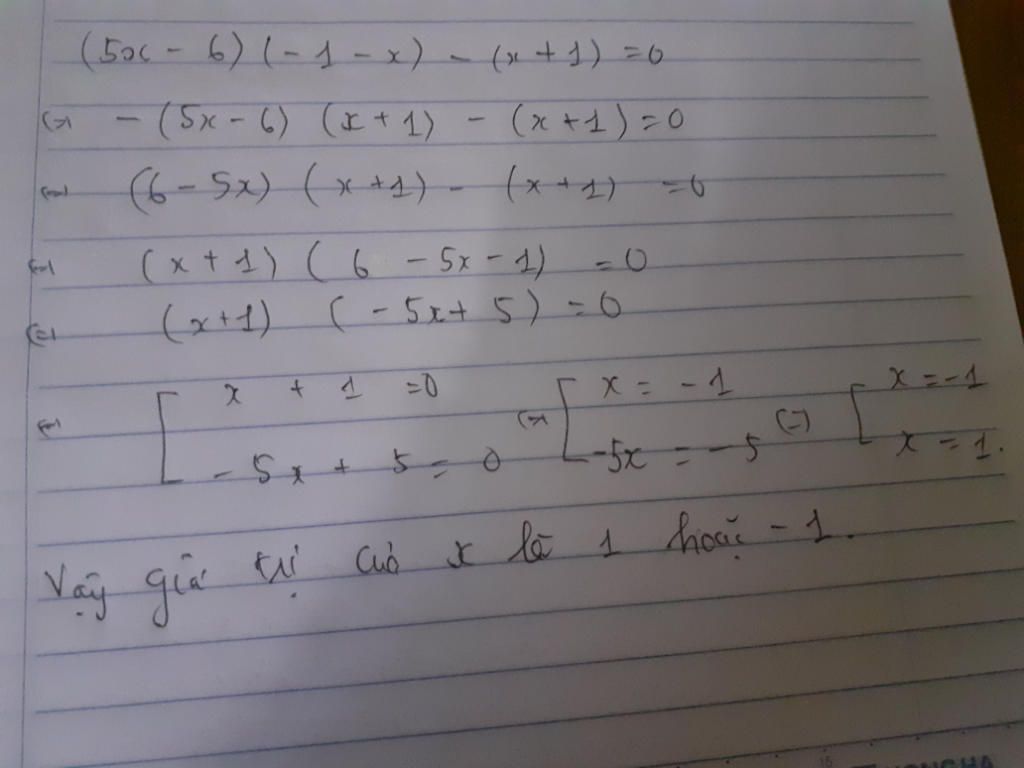 (5x - 6) (-1 - x) - (x + 1) = 0
(=) - (5x - 6) (x + 1) - (x + 1) = 0
(=) (6 - 5x) (x + 1) - (x + 1) = 0
(=) (x + 1) (6 - 5x - 1) = 0
(=) (x + 1) (-5x + 5) = 0
(=) [ x + 1 = 0 (=) [ x = -1 (=) [ x = -1
-5x + 5 = 0 -5x = -5 x = 1.
Vậy giá trị của x là 1 hoặc -1.
15
HONGHA